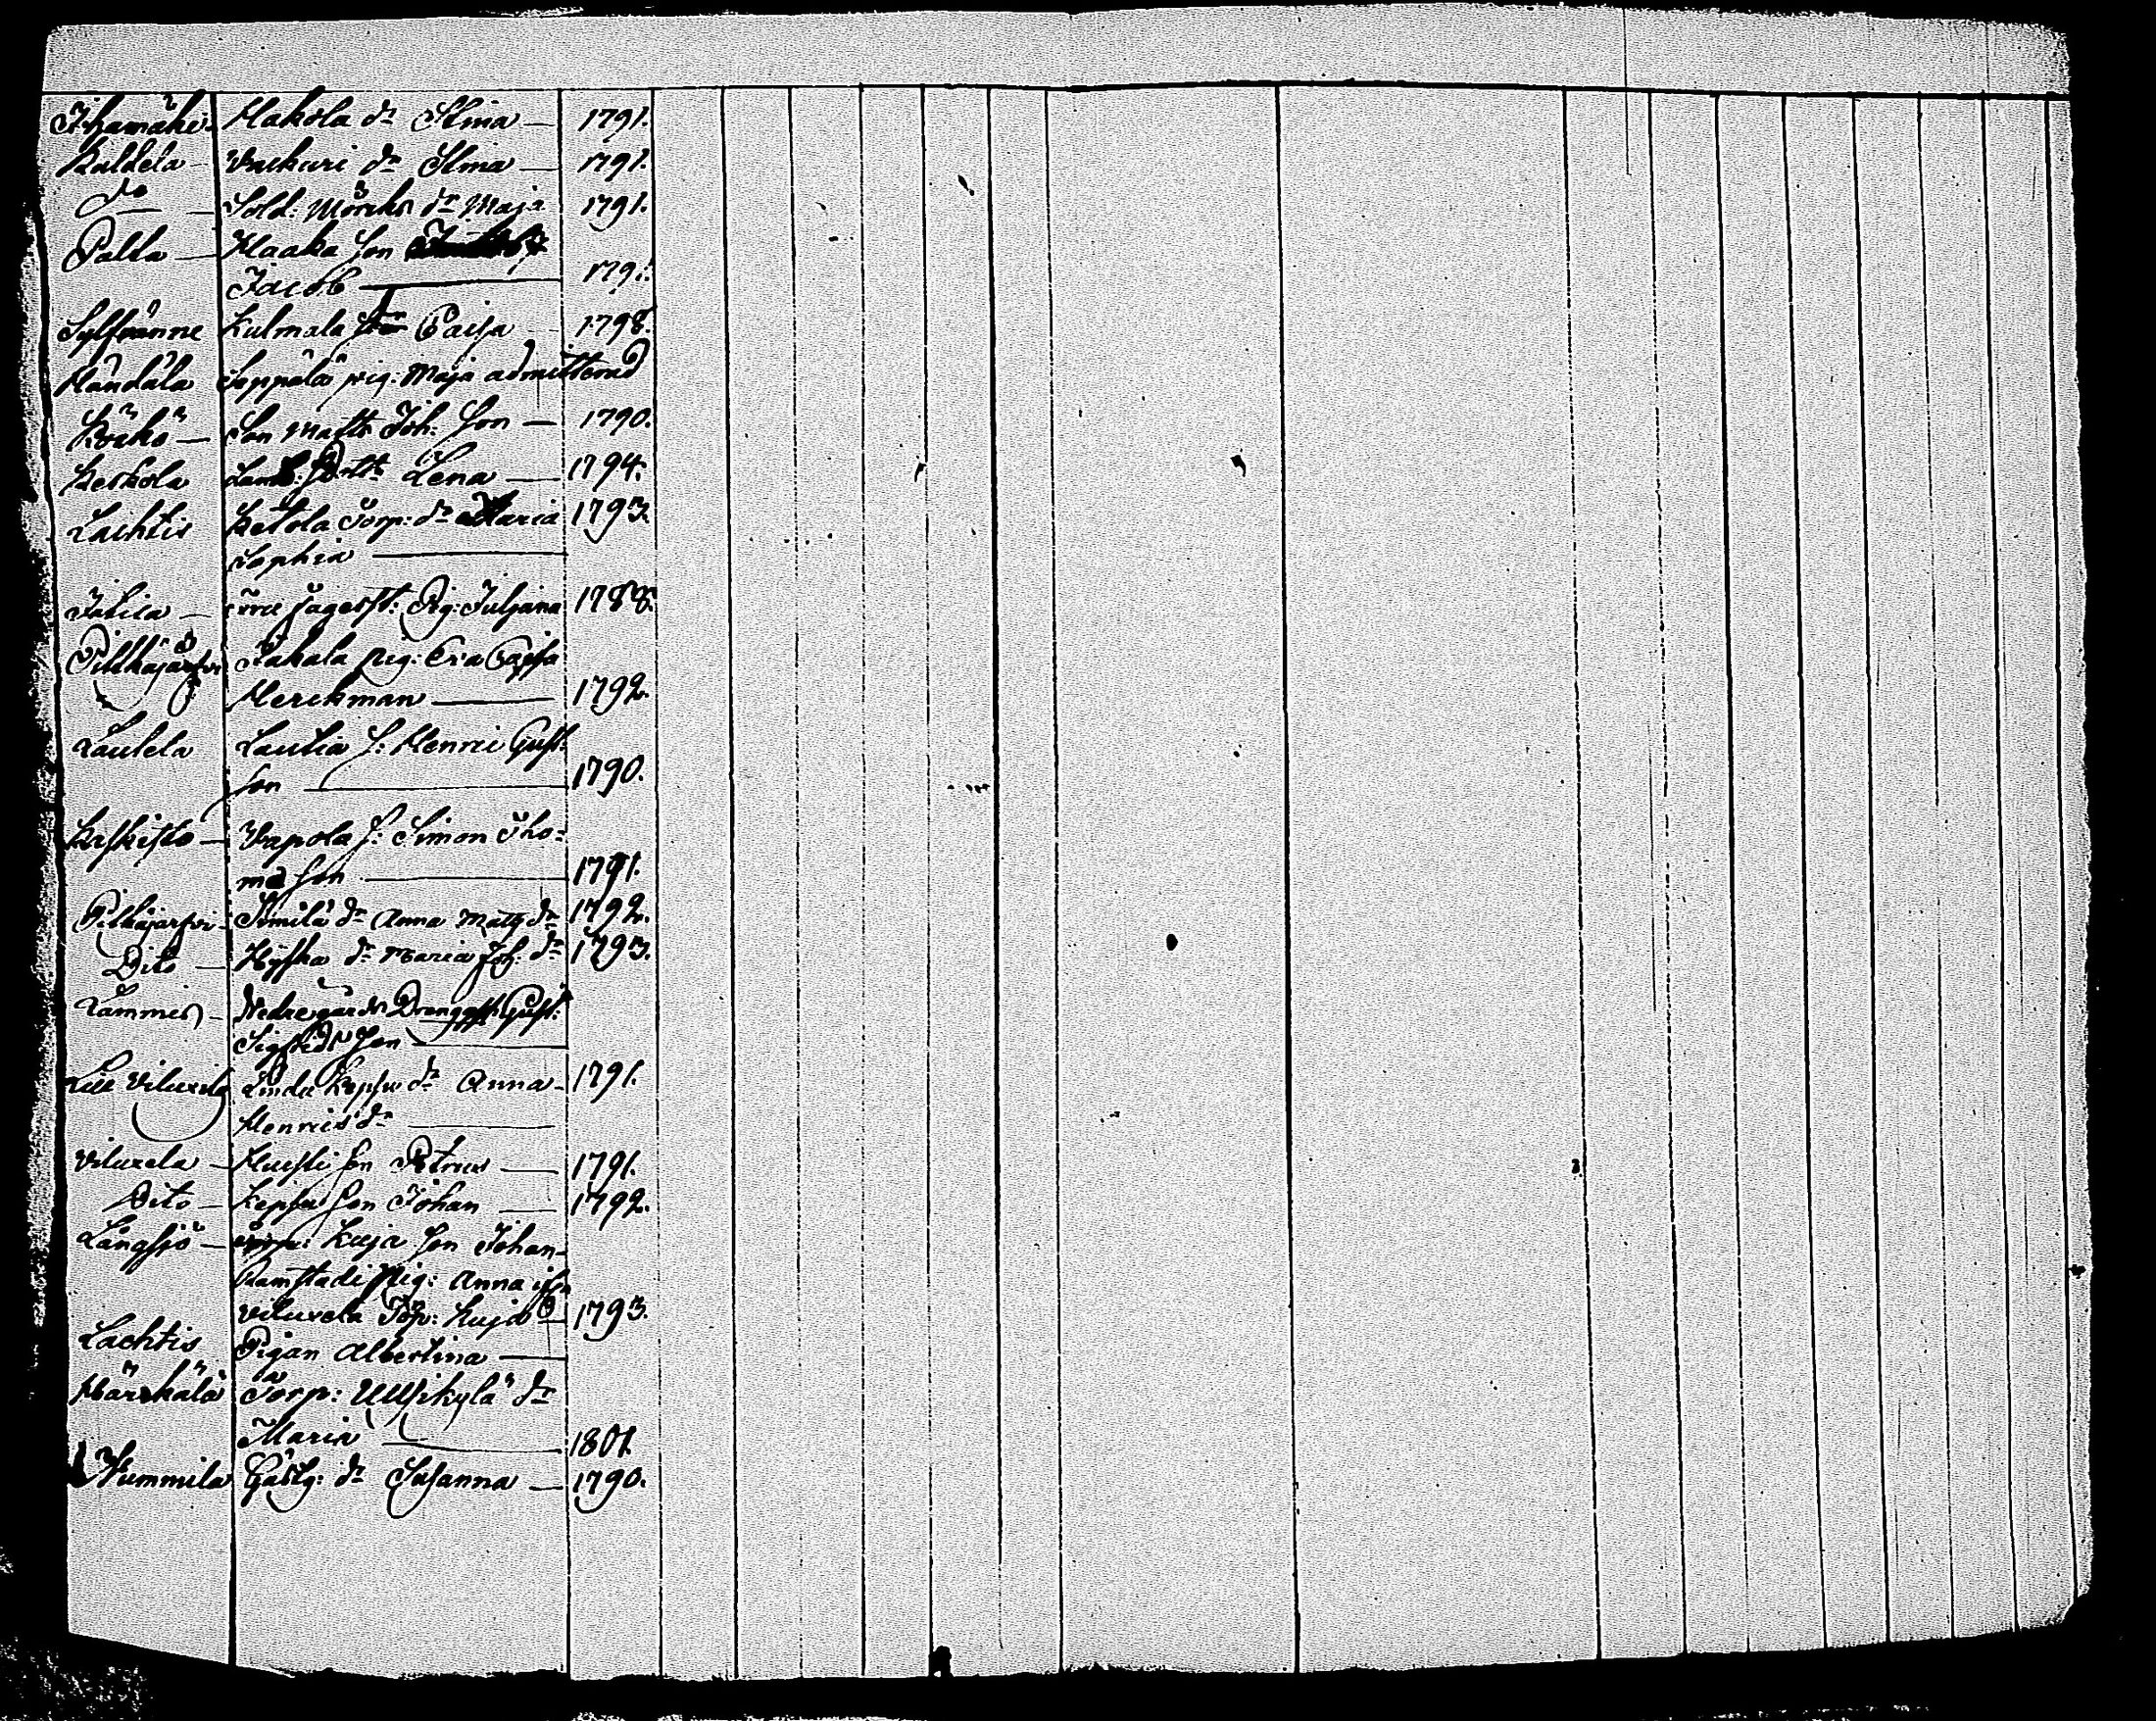 Ihamäki Hakola dr Stina 1791.
Kaldela Vackuri dr Stina 1791.
do Sold: Mörcks dr Maja 1791.
Palta Haaka Son
Jacob 1791.
Sylfvänne Kulmala Caisa 1798.
Händälä Seppälä pig: Maja admitterad
Körkö Son Matts Joh: Son 1790.
Keskola Lena 1794.
Lachtis Ketola Torp: dr Maria 1793.
Sophia
Jatila Pig: Juljana 1788.
Pitkäjärfvi Kakala pig: Eva Cajsa
Herckman 1792.
Lautela Lautia S: Henric Gust:
Son 1790.
Kaskisto Vapola S: Simon Tho-
mas Son 1791.
Pitkäjärfvi Simila dr Anna Matts dr 1792.
Dito Hyfka dr Maria Joh: dr 1793.
Lammis Nedregårds Gust:
Sigfrids Son
Lill Viluxela Linda Kepsu dr Anna 1791.
Henrics dr
Viluxela Huchti Son Petrus 1791.
Dito Kepsu Son Johan 1792.
Långsjö Kuja Son Johan
Ramstadi Pig: Anna
Viluxela Torp: Kuja 1793.
Lachtis Pigan Albertina
Härkälä Torp: Uusikylä dr
Maria 1801.
Nummila Gästg: dr Susanna 1790.